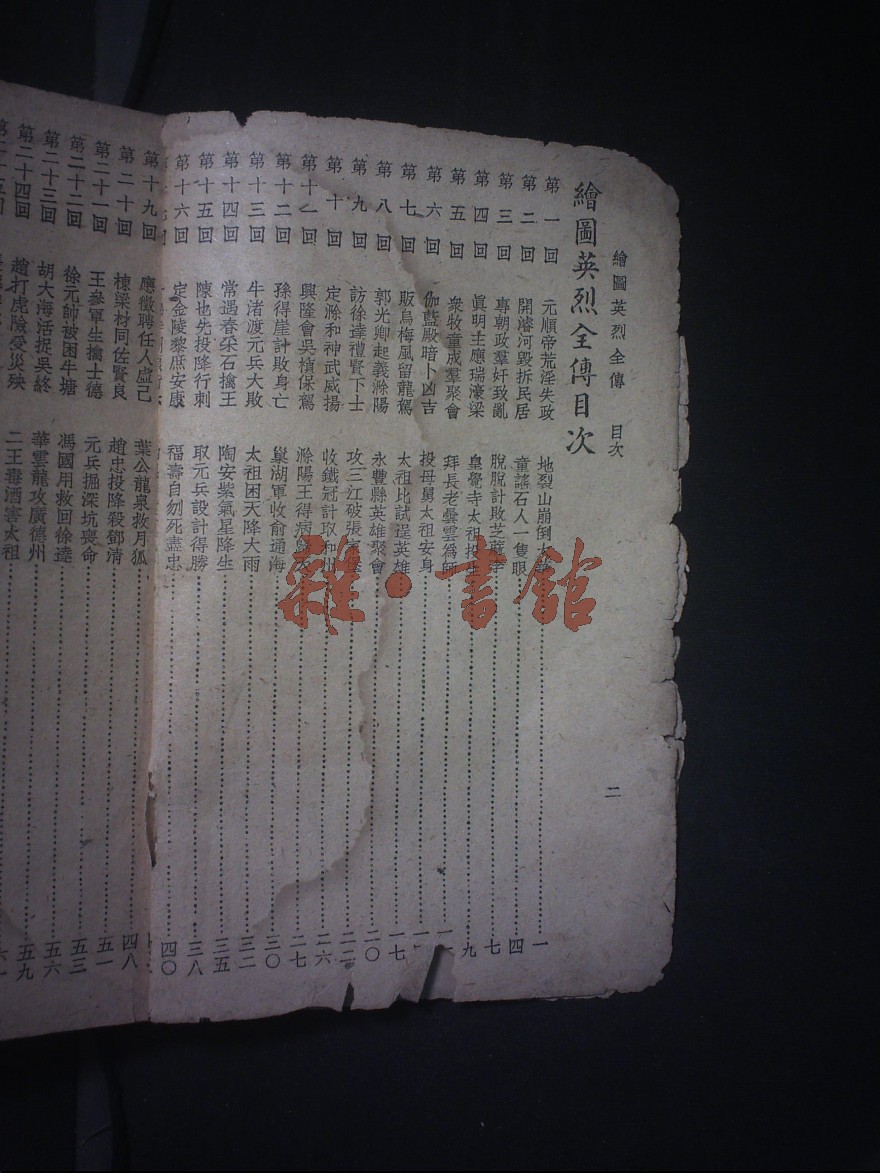 繪圖英烈全傳 目次 二
繪圖英烈全傳目次
第一回 元順帝荒淫失政 地裂山崩倒太 一
第二回 開濬河毀拆民居 童謠石人一隻眼 四
第三回 專朝政羣奸致亂 脫脫計敗芝蔴李 七
第四回 眞明主應瑞濠梁 皇覺寺太祖投 九
第五回 衆牧童成羣聚會 拜長老曇雲爲師
第六回 伽藍殿暗卜凶吉 投母舅太祖安身
第七回 販烏梅風留龍駕 太祖比試逞英雄 一七
第八回 郭光卿起義滁陽 永豐縣英雄聚會 二〇
第九回 訪徐達禮賢下士 攻三江破張家 二三
第十回 定滁和神武威揚 收鐵冠計取和州 二六
第十一回 興隆會吳楨保駕 滁陽王得病歸天 二七
第十二回 孫得崖計敗身亡 巢湖軍收俞通海 三〇
第十三回 牛渚渡元兵大敗 太祖困天降大雨 三二
第十四回 常遇春采石擒王 陶安紫氣星降生 三五
第十五回 陳也先投降行刺 取元兵設計得勝 三八
第十六回 定金陵黎庶安康 福壽自刎死盡忠 四〇
第十九回 應徵聘任人虛己 葉公龍泉救月狐 四八
第二十回 棟梁材同佐賢良 趙忠投降殺鄧清 五一
第二十一回 王參軍生擒士德 元兵掘深坑喪命 五三
第二十二回 徐元帥被困牛塘 馮國用救回徐達 五六
第二十三回 胡大海活捉吳終 華雲龍攻廣德州 五九
第二十四回 趙打虎險受災殃 二王毒酒害太祖